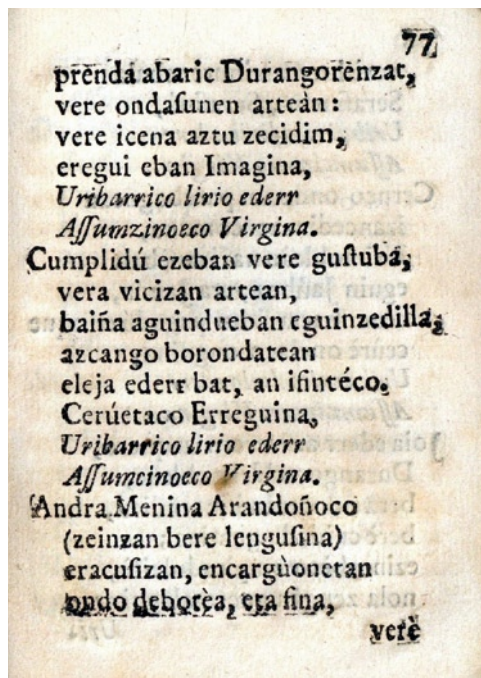 77
prendá abaric Durangorènzat,
vere ondaſunen arteàn:
vere icena aztu zecidim,
eregui eban Imagina,
Uribarrico lirio ederr
Aſſumzinoeco Virgina.
Cumplidú ezeban vere guſtubá,
vera vicizan artean,
baiña aguindueban eguinzedilla,
azcango borondatean
eleja ederr bat, an iſintéco.
Cerúetaco Erreguina,
Uribarrico lirio ederr
Aſſumcinoeco Virgina.
Andra Menina Arandoñoco
(zeinzan bere lenguſina)
eracuſizan, encargùonetan
ondo debotèa, eta fina,
verè